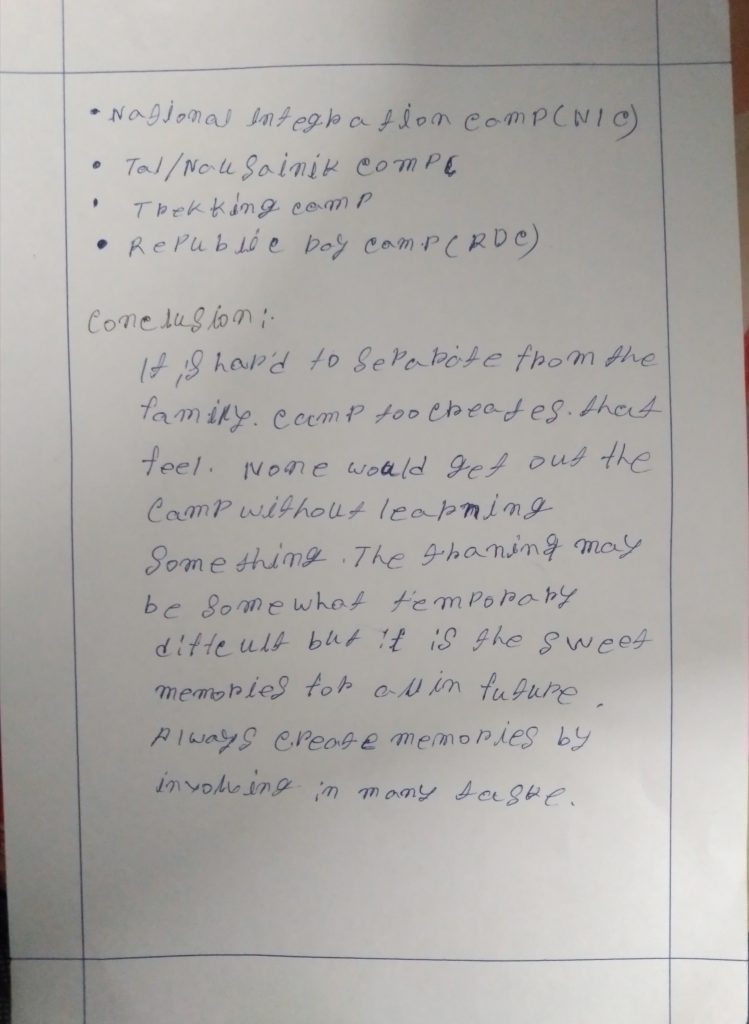 • National Integration camp (NIC)
• Tal/Nau Sainik camp (
• Trekking camp
• Republic Day camp (RDC)
Conclusion:-
It is hard to separate from the
family. camp too creates. that
feel. None would get out the
camp without learning
something. The traning may
be somewhat temporary
difficult but it is the sweet
memories for all in future.
Always create memories by
involving in many taske.